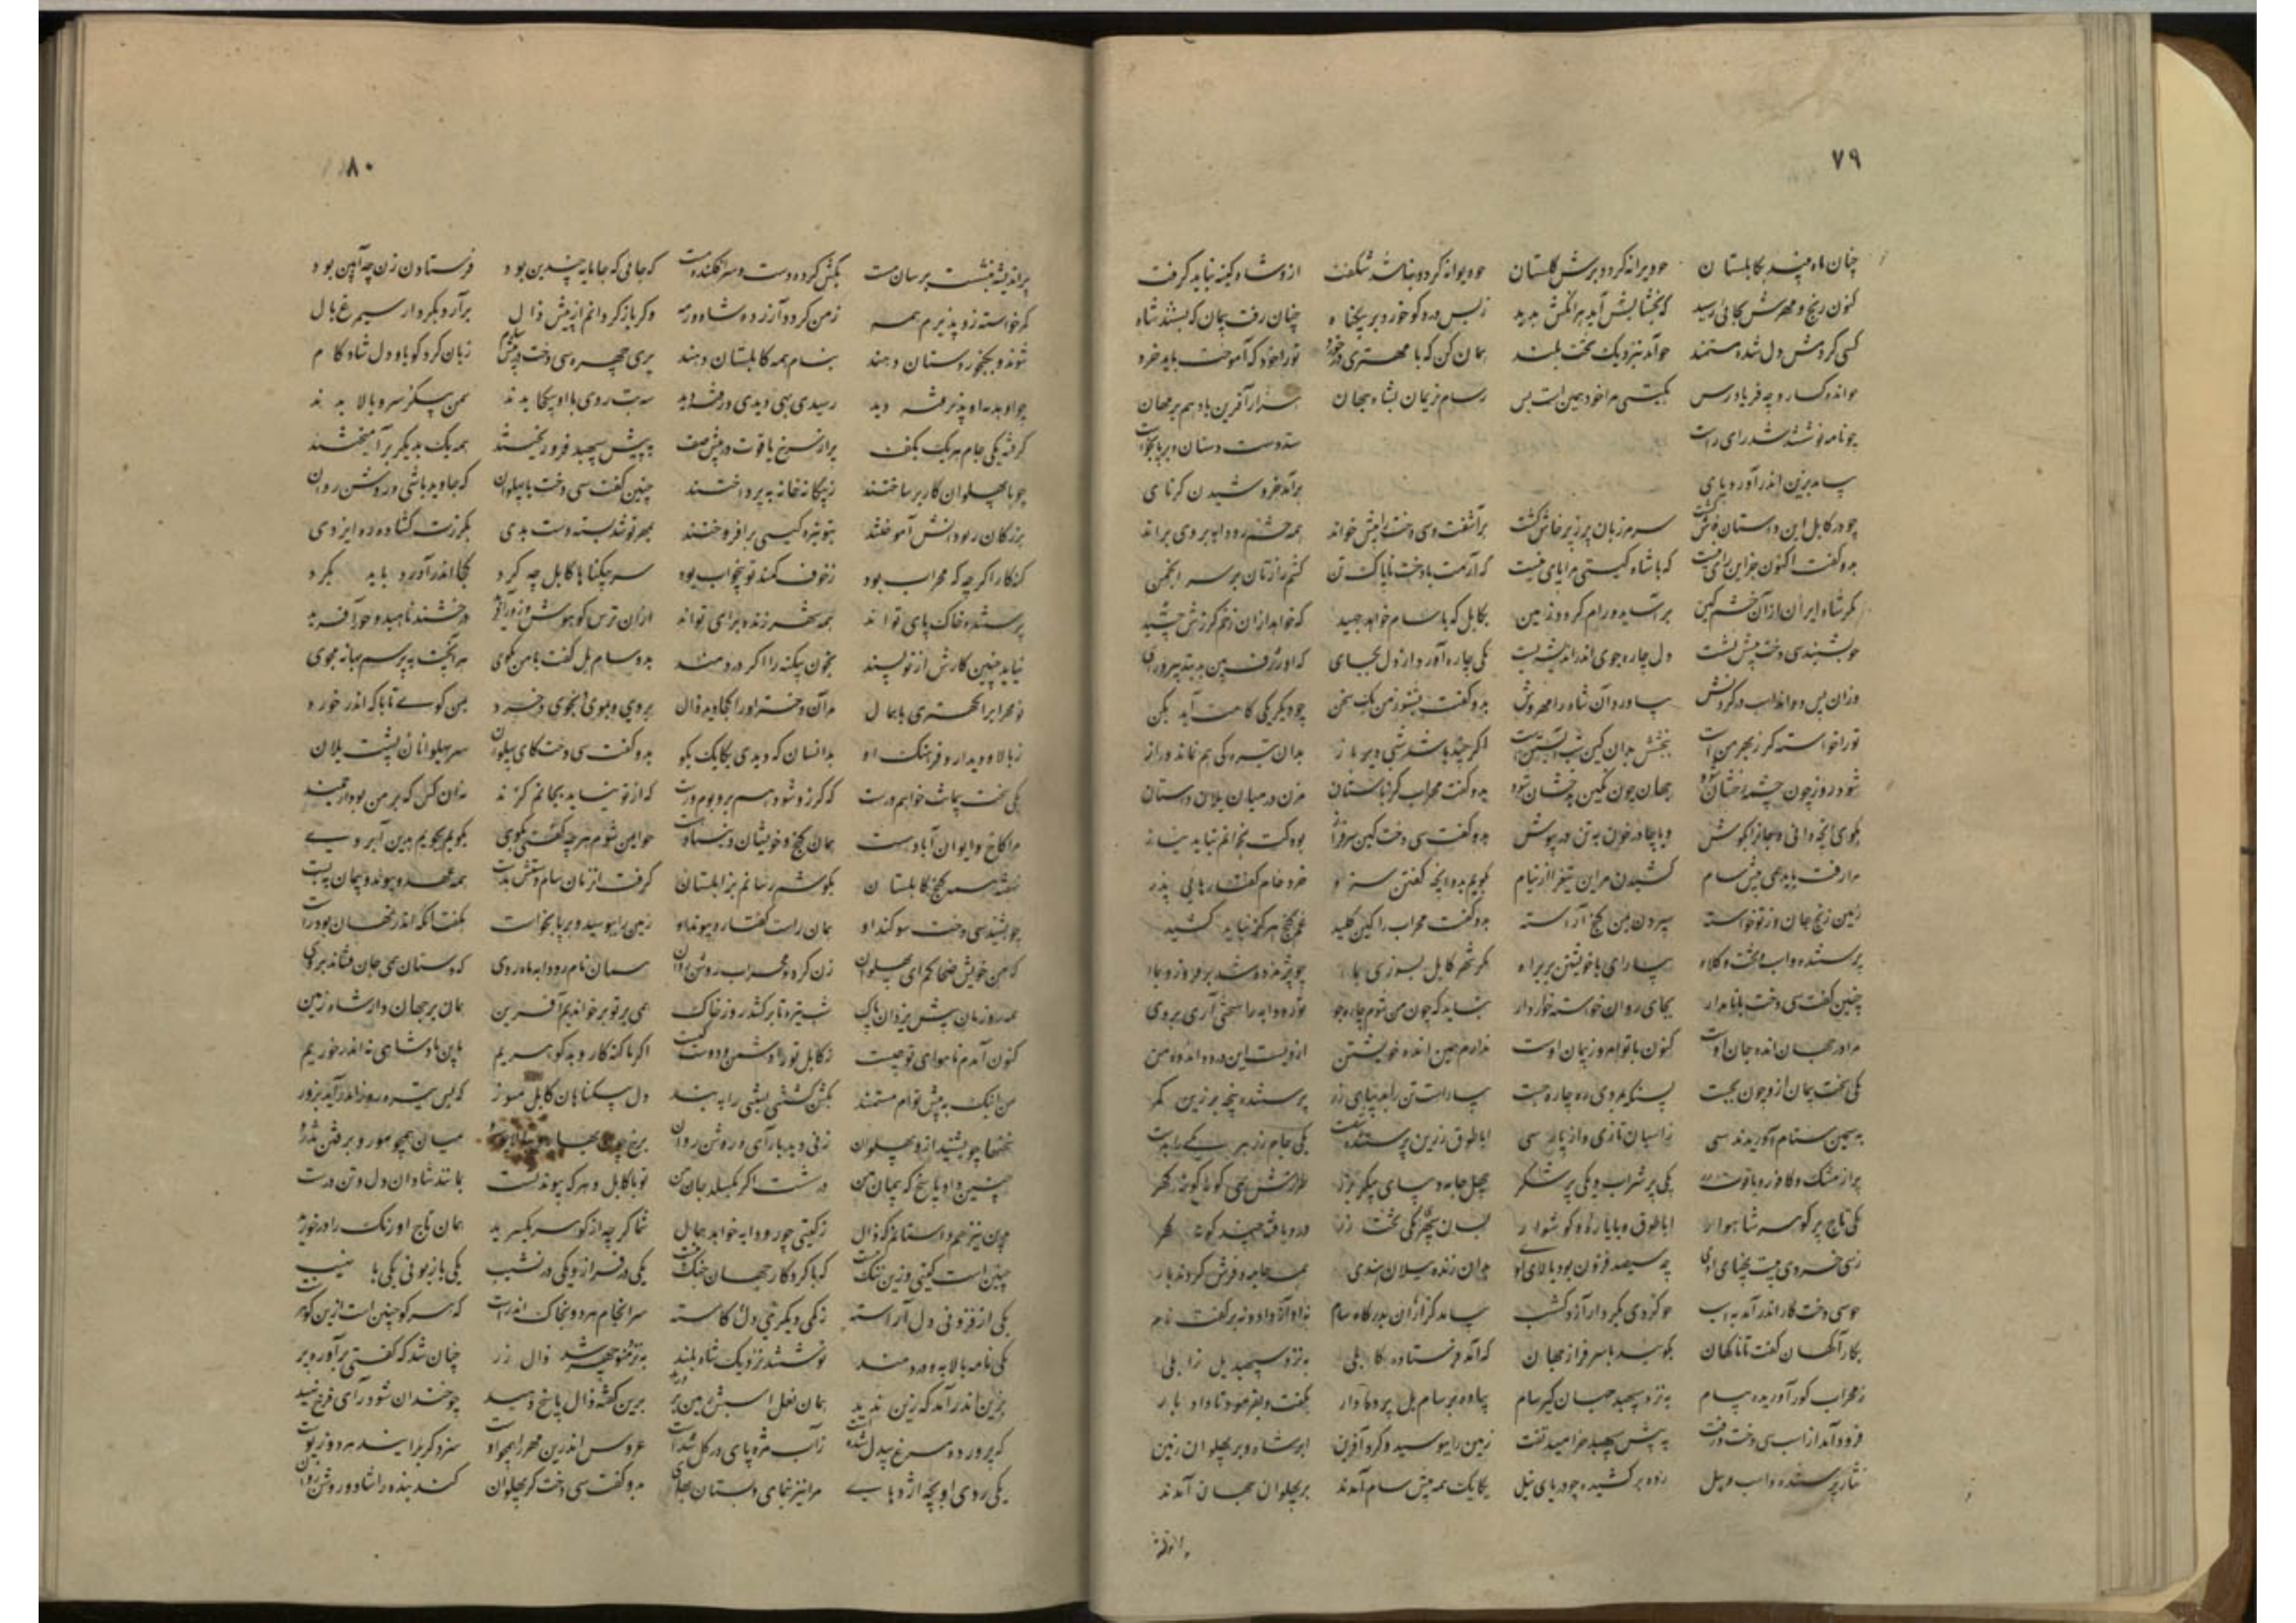 ۷۹
چنان ماه بیند بکابلستان چو ویرانه گردد برش گلستان چو دیوانه گردد نباشد شگفت ازو شاه کینه نباید گرفت
کنون رنج و مهرش بجائی رسید که بخشایش آید هر آنکش بدید ز بس درد کو خورد بر بیگناه چنان رفت پیمان که بشنید شاه
کسی کردمش دل شده مستمند چو آید بنزدیک تخت بلند همان کن که با مهتری در خورد تو را خود که آموخت باید خرد
بگیتی مرا خود همین است بس هزار آفرین باد هم بر مهان
چو نامه نوشتند شد رای راست ستد دست دستان و بر پای خواست
بیامد بزین اندر آورد پای برآمد خروشیدن کرنای
چو در کابل این داستان فاش گشت سر مرزبان پر ز پرخاش گشت برآشفت و سیندخت را پیش خواند همه خشم رودابه بر وی براند
بدو گفت اکنون جز این رای نیست که با شاه گیتی مرا پای نیست که آرمت با دخت ناپاک تن کشم زارتان بر سر انجمن
مگر شاه ایران از آن خشم و کین برآساید و رام گردد زمین بکابل که با سام خواهد چخید که خواهد از آن زخم گرزش چشید
چو بشنید سیندخت پیشش نشست دل چاره جوی اندر اندیشه بست یکی چاره آورد از دل بجای که او ژرف بین بد بتدبیر و رای
وزان پس دوان بیاورد آن شاه را بدو گفت بشنو ز من یک سخن چو دیگر یکی کامت آید بکن
تو را خواسته گر ز بهر من است ببخش بدان کین شب آبستن است اگر چند باشد شب دیریاز بدان تیرگی هم نماند دراز
شود روز چون چشمه رخشان شود جهان چون نگین بدخشان شود بدو گفت محراب کز باستان مزن در میان یلان داستان
بگوی آنچه دانی و جان را بکوش و یا چادر خون به تن در بپوش بدو گفت سیندخت کین سرفراز بود کت بخونم نباید نیاز
مرا رفت باید همی پیش سام کشیدن مر این تیغ را از نیام بگویم بدو آنچه گفتن سزد خرد خام گفتارها را پزد
ز من رنج جان و ز تو خواسته سپردن بمن گنج آراسته بدو گفت محراب را کین کلید غم گنج هرگز نباید کشید
پرستنده و اسب و تخت و کلاه بیارای با خویشتن بر براه مگر شهر کابل نسوزد بما چو پژمرده شد بر فروزد بما
چنین گفت سیندخت با نامدار بجای روان خواسته خوار دار نباید که چون من شوم چاره جو تو رودابه را سختی آری بروی
مرا در جهان انده جان اوست کنون با توام روز پیمان اوست ندارم همین انده خویشتن ازویست این درد و اندوه من
یکی سخت پیمان ازو چون بجست پس بمردی ره چاره جست بیاراست تن را بدیبای زر پرستنده پنجه بزرین کمر
به سیمین ستام آوریدند سی ز اسبان تازی و از پارسی ابا طوق زرین پرستنده شصت یکی جام زر هر یکی را بدست
پر از مشک و کافور و یاقوت یکی پر شراب و یکی پر شکر چهل جامه دیبای پیکر بزر طرازش همی گونه گونه گهر
یکی تاج پر گوهر شاهوار ابا طوق و با یاره و گوشوار بسان سپهری یکی تخت زر درو بافته چند گونه گهر
رسی خسروی بیست پهنای اوی چو سیصد فزون بود بالای اوی بدان زنده پیلان هندی همه جامه و فرش کردند بار
چو سیندخت کار اندر آمد به اسب چو گردی بکردار آذرگشسب بیامد گرازان بدرگاه سام نه آواز داد و نه برگفت نام
بکارآگهان گفت تا ناگهان بگویند با سرفراز جهان که آمد فرستاده کابلی به نزد سپهبد یل زابلی
ز محراب گرد آوریده پیام به نزد سپهبد جهان گیر سام بیامد بر سام یل پرده دار بگفت و بفرمود تا داد بار
فرود آمد از اسب سیندخت و رفت به پیش سپهبد خرامید تفت زمین را ببوسید و کرد آفرین ابر شاه و بر پهلوان زمین
نثار و پرستنده و اسب و پیل رده بر کشیده چو دریای نیل یکایک همه پیش سام آمدند بر پهلوان جهان آمدند
۸۰
پر اندیشه بنشست بر سان مست بکش کرده دست و سر افکنده پست که جائی کجا مایه چندین بود فرستادن زن چه آیین بود
گر این خواسته زو پذیرم همه ز من گردد آزرده شاه رمه و گر باز گردانم از پیش زال برآرد بکردار سیمرغ بال
شوند و بگنجور دستان دهند بنام مه کابلستان دهند پری چهره سیندخت در پیش سام زبان کرد گویا و دل شادکام
چو او بدره او پذیرفته دید رسیده بهی و بدی رفته دید سه بت روی با او بیکجا بدند سمن پیکر سرو بالا بدند
گرفته یکی جام هر یک بکف پر از سرخ یاقوت در پیش صف به پیش سپهبد فرو ریختند همه یک بدیگر برآمیختند
چو با پهلوان کار بر ساختند ز بیگانه خانه بپرداختند چنین گفت سیندخت با پهلوان که جاوید باشی و روشن روان
بزرگان ز تو دانش آموختند بتو تیره گیتی برافروختند بمهر تو شد بسته دست بدی بگرزت گشاده ره ایزدی
گنه کار اگر چه که محراب بود ز خوف کمند تو بیخواب بود سر بیگناهان کابل چه کرد کجا اندر آورد باید بگرد
پرستنده خاک پای تواند همه شهر زنده برای تواند از آن ترس کو هوش و زور آفرید درخشنده ناهید و هور آفرید
نیاید چنین کارش از تو پسند بخون بیگنه را اگر دردمند بدو سام یل گفت با من بگوی هر آنچت بپرسم بهانه مجوی
تو محراب را کهتری یا همال مر آن دختر او را کجا دید زال بروی و بموی و بخوی و خرد بمن گوی تا با که اندر خورد
ز بالا و دیدار و فرهنگ او بدانسان که دیدی یکایک بگو بدو گفت سیندخت کای پهلوان سر پهلوانان پشت یلان
یکی سخت پیمان خواهم درست که لرزد شود هم بر و بوم و رست که از تو نیاید بجانم گزند نه آن کس که بر من بود ارجمند
مرا کاخ و ایوان آبادست همان گنج و خویشان و بنیادست چو ایمن شوم هر چه گفتی بگوی بگویم بجویم بدین آبروی
نهفته همه گنج کابلستان بکوشم رسانم بزابلستان گرفت آن زمان سام دستش بدست همه عهد و پیوند و پیمان ببست
چو بشنید سیندخت سوگند او همان راست گفتار و پیوند او زمین را ببوسید و بر پای خواست بگفت آنکه اندر نهان بود راست
که من خویش ضحاکم ای پهلوان زن گرد محراب روشن روان همان نام رودابه ماهروی که دستان همی جان فشاند بروی
همه روزمان پیش یزدان پاک شب تیره تا برکشد روز خاک همی بر تو بر خواندیم آفرین همان بر جهاندار شاه زمین
کنون آمدم تا هوای تو چیست ز کابل تو را دشمن و دوست کیست اگر ما گنه کار و بدگوهریم بدین پادشاهی نه اندر خوریم
من اینک به پیش توام مستمند بکش کشتنی بستنی را به بند دل بیگناهان کابل مسوز که بس تیره روز اندر آید بروز
سخنها چو بشنید ازو پهلوان زنی دید با رای و روشن روان برخ چون بهار و ببالا چو سرو میان همچو مور و برفتن تذرو
چنین داد پاسخ که پیمان من درست است اگر بگسلد جان من تو با کابل و هر که پیوند تست بمانند شادان دل و تن درست
بدین نیز همداستانم که زال ز گیتی چو رودابه خواهد همال شما گر چه از گوهر دیگرید همان تاج و اورنگ را درخورید
چنین است گیتی وزین ننگ نیست که با کردگار جهان جنگ نیست یکی بر فراز و یکی در نشیب یکی با فزونی یکی با نهیب
یکی از فزونی دل آراسته ز کمی دیگری دل کاسته سرانجام هر دو بخاک اندرست که هر سر کو چنین است ازین گوهر
یکی نامه با لابه و دردمند نوشتند نزدیک شاه بلند به نزد منوچهر شد زال زر چنان شد که گفتی برآورد پر
بزین اندر آمد که زین ندید همان نعل اسبش زمین ندید برین گفته زال پاسخ دهد چو خندان شود رای فرخ نهد
که پرورده مرغ بیدل شدست ز آب مژه پای در گل شدست عروس اندرین مهر ار همچو اوست سزد گر برآیند هر دو ز پوست
یکی روی او بچه اژدها مرا نیز بنمای و بستان بها بدو گفت سیندخت گر پهلوان کند بنده را شاد و روشن روان